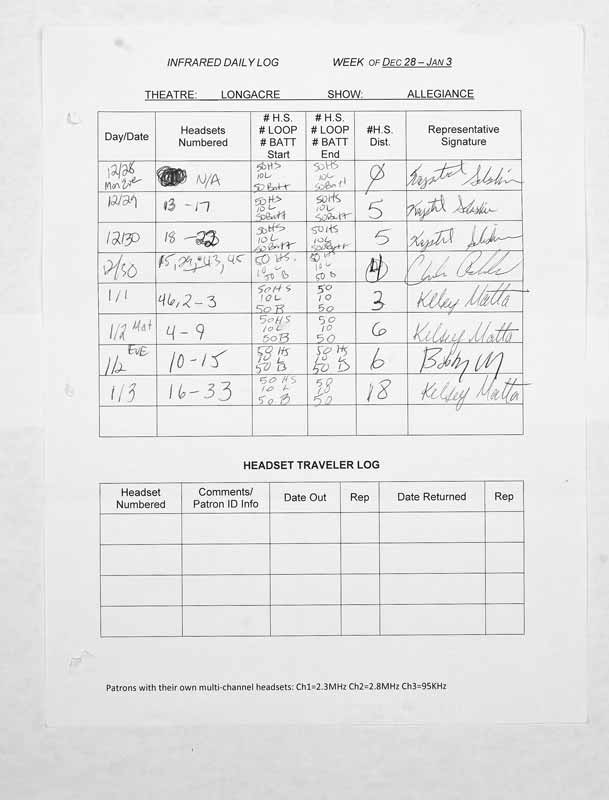 INFRARED DAILY LOG WEEK OF DEC 28 – JAN 3
THEATRE: LONGACRE SHOW: ALLEGIANCE
Day/Date
Headsets
Numbered
# H.S.
# LOOP
# BATT
Start
# H.S.
# LOOP
# BATT
End
#H.S.
Dist.
Representative
Signature
12/28
Mon Eve
N/A
50 HS
10 L
50 Batt
50 HS
10 L
50 Batt
0
Krystal
12/29
13 - 17
50 HS
10 L
50 Batt
50 HS
10 L
50 Batt
5
Krystal
12/30
18 - 22
50 HS
10 L
50 Batt
50 HS
10 L
50 Batt
5
Krystal
12/30
43, 45
50 HS.
10 L
50 B
50 HS.
10 L
50 B
4
1/1
46, 2-3
50 HS
10 L
50 B
50
10
50
3
Kelsey Matta
1/2 Mat
4 - 9
50 HS
10 L
50 B
50
10
50
6
Kelsey Matta
1/2 EVE
10 - 15
50 HS
10 L
50 B
50 HS
10 L
50 B
6
Bobby
1/3
16 - 33
50 HS
10 L
50 B
50
10
50
18
Kelsey Matta
HEADSET TRAVELER LOG
Headset
Numbered
Comments/
Patron ID Info
Date Out
Rep
Date Returned
Rep
Patrons with their own multi-channel headsets: Ch1=2.3MHz Ch2=2.8MHz Ch3=95KHz